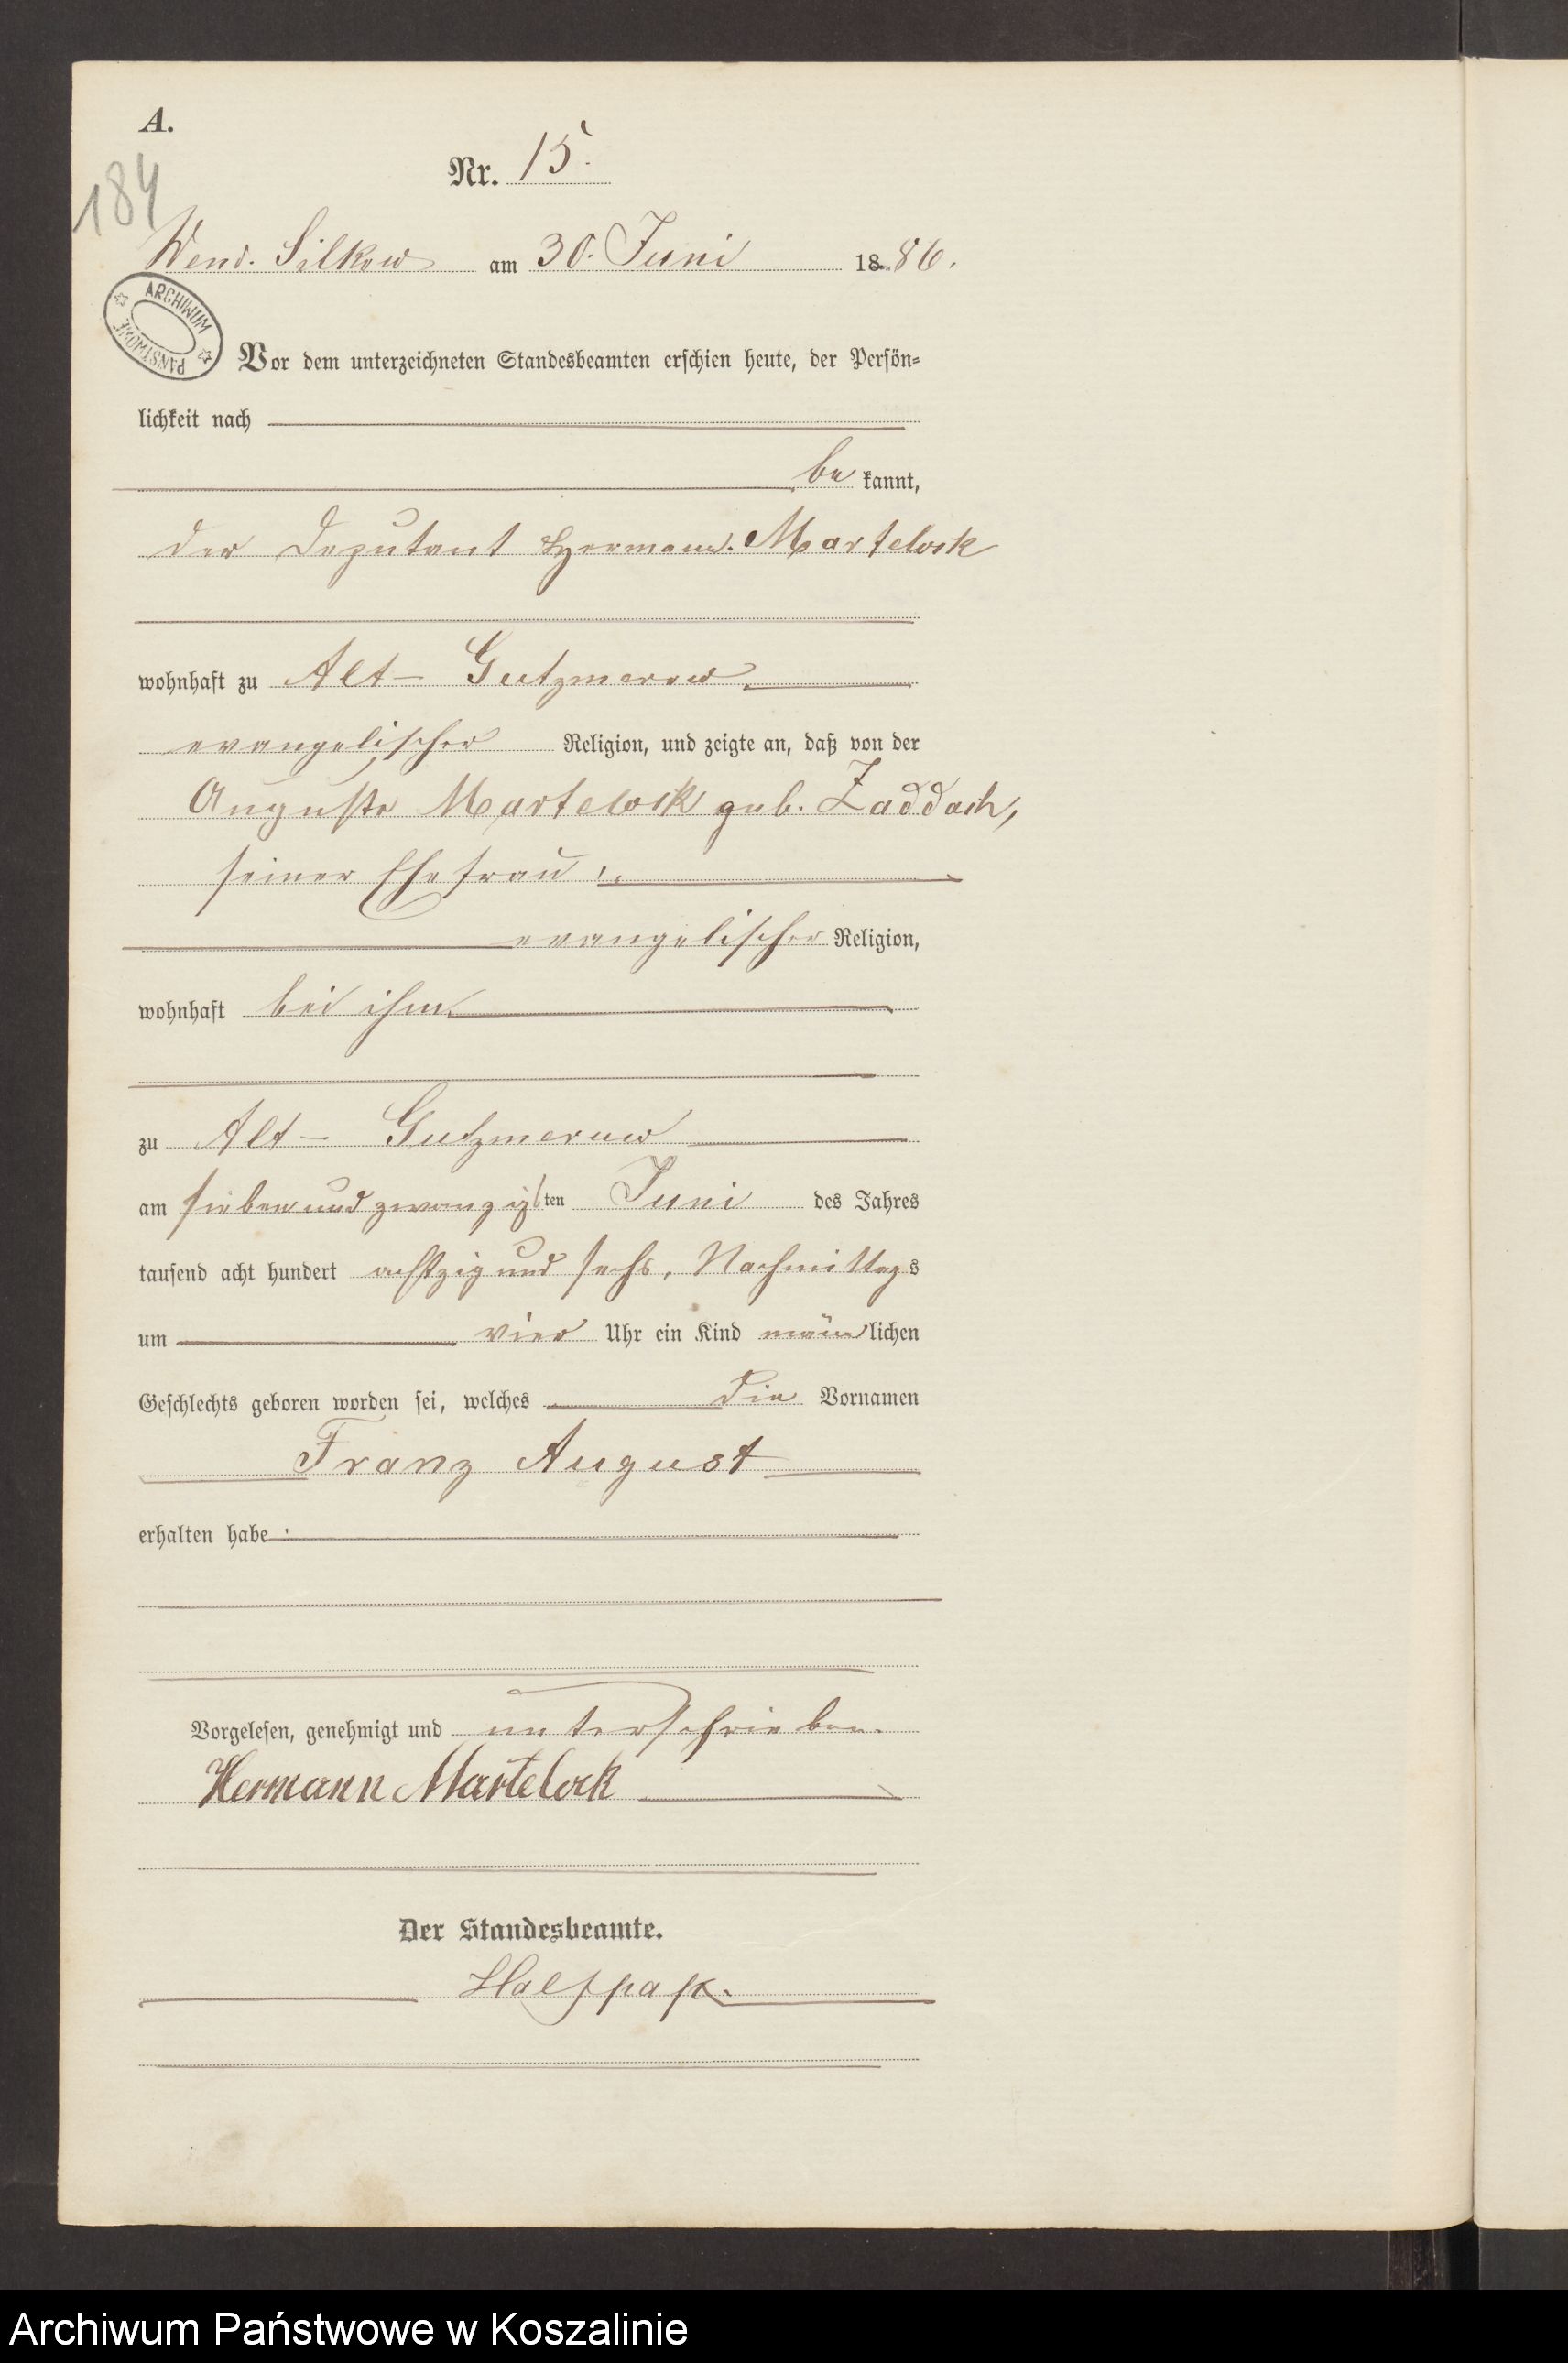 A.
184
Nr. 15.
Wend. Silkow am 30. Juni 1886.
ARCHIWUM PAŃSTWOWE
Vor dem unterzeichneten Standesbeamten erschien heute, der Persön-
lichkeit nach
be kannt,
der Deputant Hermann Martelock
wohnhaft zu Alt- Gutzmerow
evangelischer Religion, und zeigte an, daß von der
Auguste Martelock geb. Zaddach,
seiner Ehefrau,
evangelischer Religion,
wohnhaft bei ihm
zu Alt- Gutzmerow
am sieben und zwanzigsten Juni des Jahres
tausend acht hundert achtzig und sechs, Nachmittags
um vier Uhr ein Kind männlichen
Geschlechts geboren worden sei, welches die Vornamen
Franz August
erhalten habe.
Vorgelesen, genehmigt und unterschrieben.
Hermann Martelock
Der Standesbeamte.
Archiwum Państwowe w Koszalinie